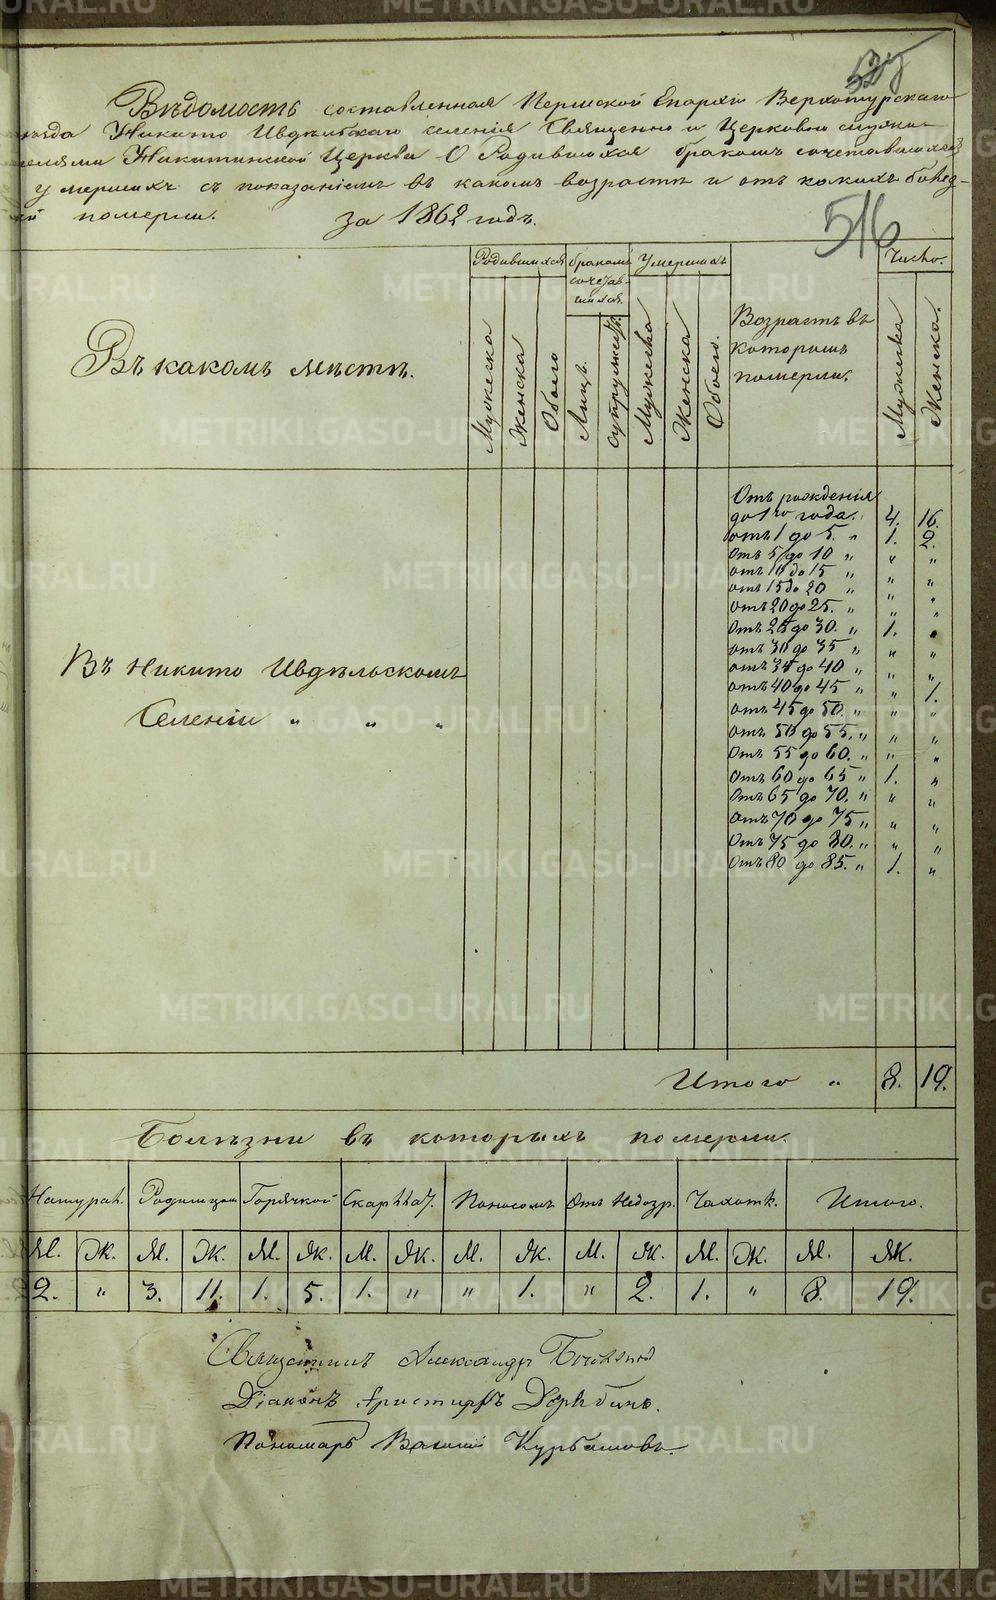 516
Вѣдомость составленная Пермской Епархіи Верхотурскаго
уѣзда Никито Ивдѣльскаго селенія Священно и Церковно служи-
телями Никитинской Церкви О Родившихся бракомъ сочетавшихся
умершихъ съ показаніемъ въ какомъ возрастѣ и отъ какихъ болѣз-
ней померли. за 1862 годъ.
Въ какомъ мѣстѣ.
Родившихся
Мужеска
Женска
Обоего
бракомъ
сочетав-
шихся.
Лицъ.
супружествъ.
Умершихъ
Мужеска
Женска
Обоего.
Возрастъ въ
которомъ
померли.
Число.
Мужеска
Женска.
Въ Никито Ивдѣльскомъ
Селеніи „ „ „
Отъ рожденія
до 1го года. 4. 16.
отъ 1 до 5. „ 1. 2.
отъ 5 до 10 „ „ „
отъ 10 до 15 „ „ „
отъ 15 до 20 „ „ „
отъ 20 до 25. „ „ „
отъ 25 до 30. „ 1. „
отъ 30 до 35 „ „ „
отъ 35 до 40 „ „ „
отъ 40 до 45 „ „ 1.
отъ 45 до 50. „ „ „
отъ 50 до 55. „ „ „
отъ 55 до 60. „ „ „
отъ 60 до 65 „ 1. „
отъ 65 до 70. „ „ „
отъ 70 до 75 „ „ „
отъ 75 до 80. „ „ „
отъ 80 до 85. „ 1. „
Итого „ 8. 19.
Болѣзни въ которыхъ померли.
Натурал. Родимцом Горячкой Скарлат. Поносомъ Отъ Недозр. Чахотк. Итого.
М. Ж. М. Ж. М. Ж. М. Ж. М. Ж. М. Ж. М. Ж. М. Ж.
2. „ 3. 11. 1. 5. 1. „ „ 1. „ 2. 1. „ 8. 19.
Священникъ Александр
Діаконъ
Пономарь Курбатовъ.
METRIKI.GASO-URAL.RU